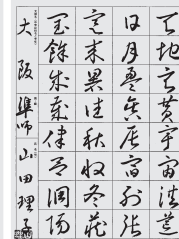 天地玄黄宇宙洪荒
日月盈昃辰宿列張
寒来暑往秋収冬蔵
閏餘成歳律呂調陽
大阪 準師 山田理